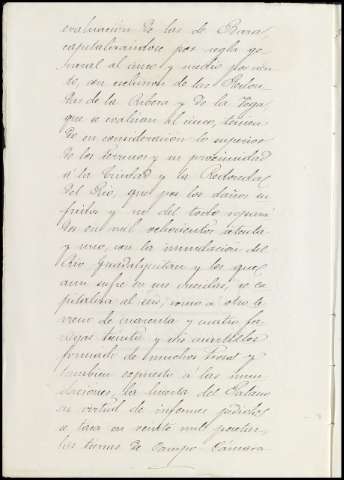 evaluación de las de Barra
capitalizandose por regla ge
neral al cinco y medio por cien
to, con esclusion de las Redon
das de la Ribera y de la Vega
que se evaluan al cinco, tenien
do en consideración lo superior
de los terrenos y su proximidad
á la Ciudad y la Redonda
del Rio, que por los daños su
fridos y no del todo repara
dos en mil ochocientos ochenta
y uno, con la inundacion del
Rio Guadalquivir y los que
aun sufre en sus crecidas, se ca
pitaliza al seis, como á otro te
rreno de cuarenta y cuatro fa
negas treinta y dos cuartillos
formado de muchos trozos y
tambien espuesto á las inun
daciones, la huerta del
en virtud de informes pedidos
se tasa en veinte mil pesetas,
las tierras de Campo Cámara